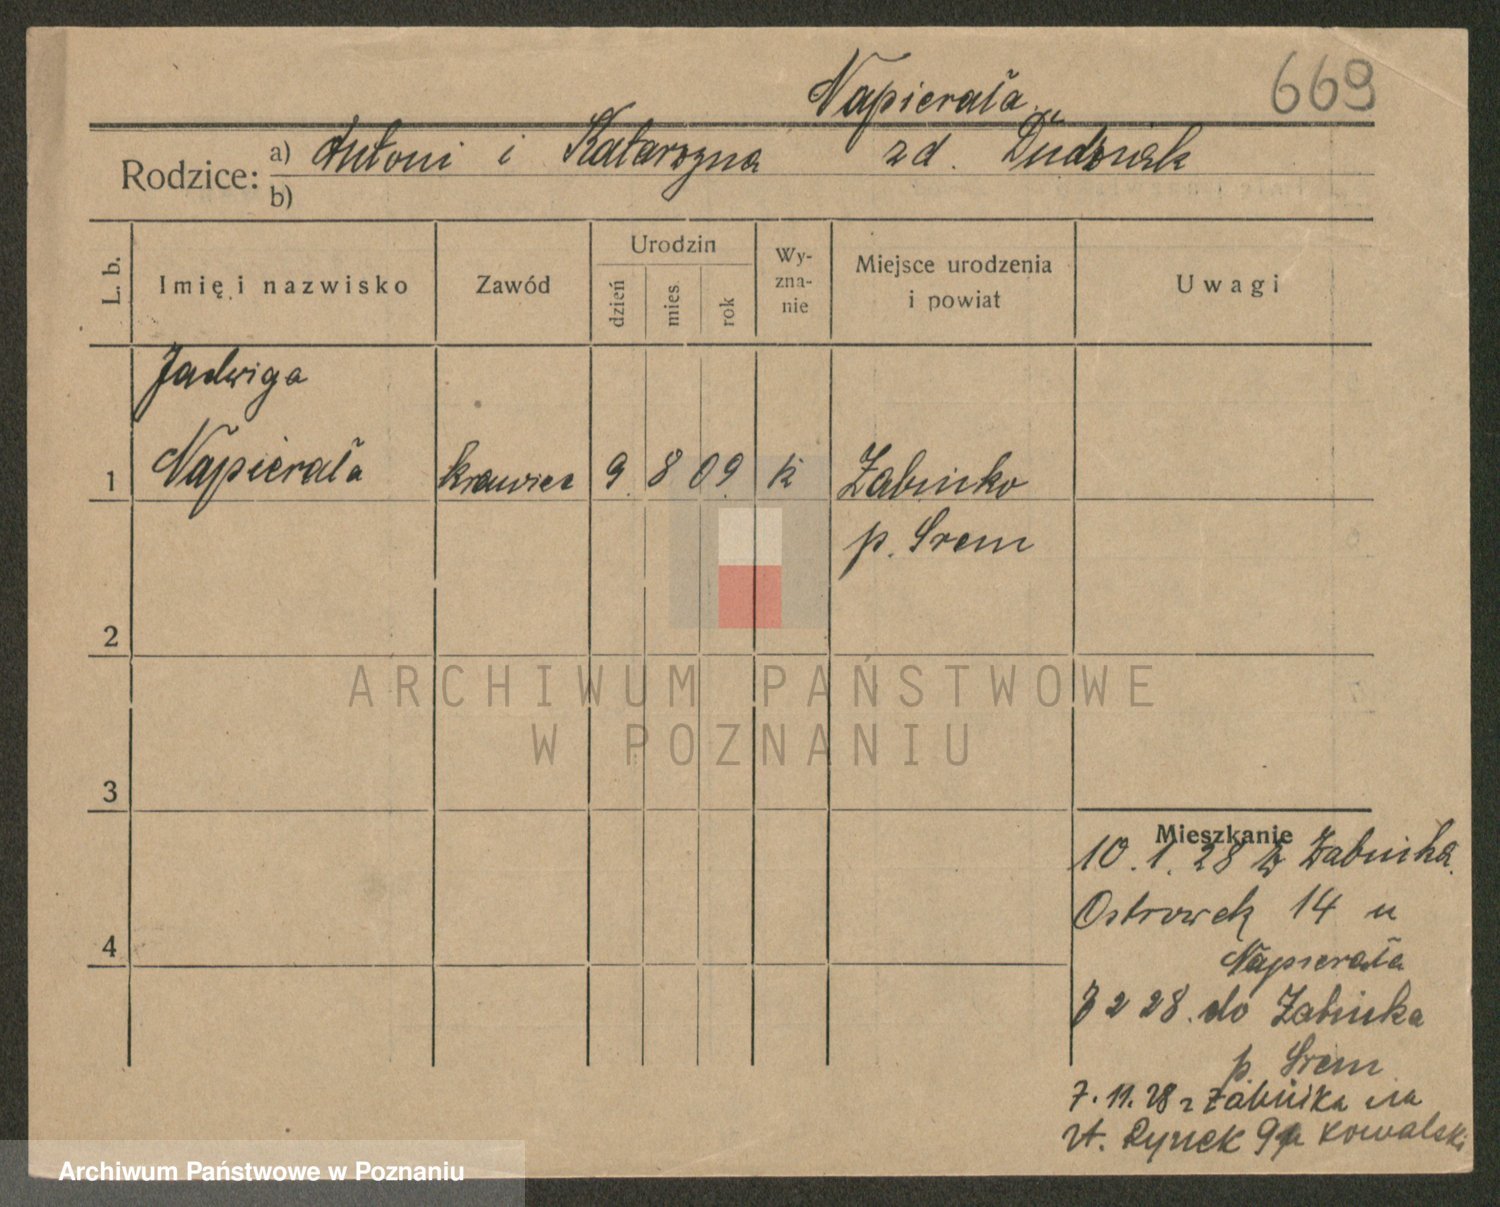 669
Napierała
Rodzice: a) Antoni i Katarzyna zd. Dudziak
b)
L. b. Imię i nazwisko Zawód Urodzin dzień mies rok Wy-zna-nie Miejsce urodzenia i powiat Uwagi
Jadwiga
1 Napierała krawiec 9 8 09 k Żabinko
p. Śrem
2
ARCHIWUM PAŃSTWOWE
W POZNANIU
3
Mieszkanie
10. 1. 28 z Żabinka
Ostrówek 14 u
4
Napierała
7 2 28. do Żabinka
p. Śrem
7. 11. 28 z Żabinka na
St. Rynek 9 Kowalski
Archiwum Państwowe w Poznaniu